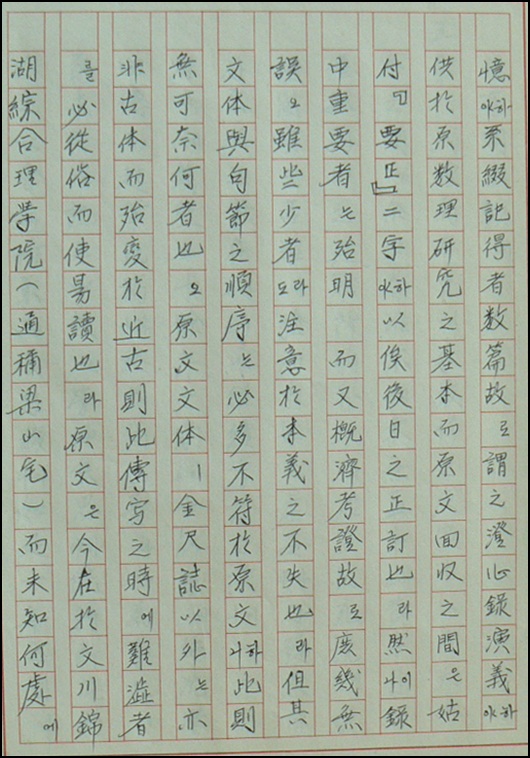 憶하야系綴記得者数篇故로謂之澄心錄演義하야
供於原数理研究之基本而原文回収之間은姑
付『要正』二字하야以俟後日之正訂也라然이나錄
中重要者는殆明 而又概濟考證故로庶幾無
誤오雖些少者라도注意於本義之不失也라但其
文体與句節之順序는必多不符於原文하나此則
無可奈何者也오原文文体ㅣ金尺誌以外는亦
非古体而殆變於近古則此傳写之時에難澁者
를必從俗而使易讀也라原文은今在於文川錦
湖綜合理學院(通稱梁山宅)而未知何處에